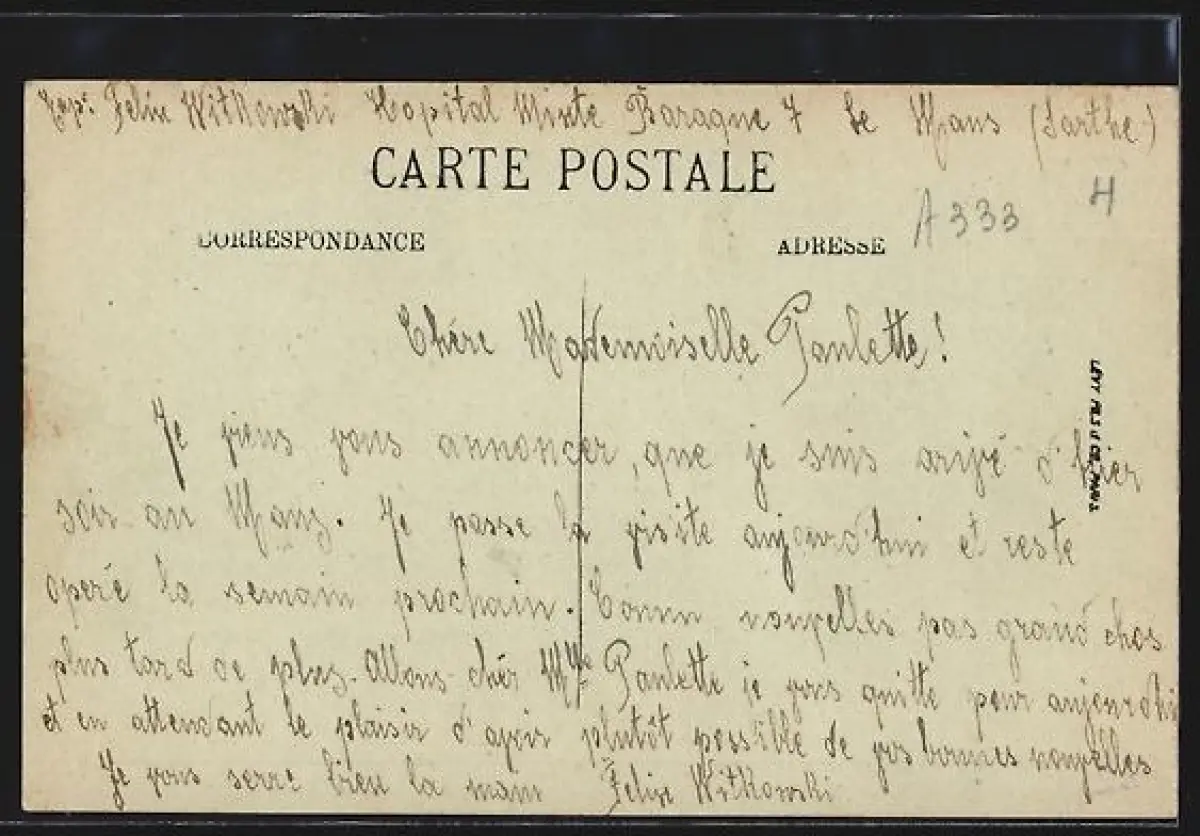 Exp: Felix Witkowski Hopital Mixte Baraque 7 Le Mans (Sarthe)
CARTE POSTALE
A 333
4
CORRESPONDANCE ADRESSE
Chére Mademoiselle Paulette!
Je viens vous annoncer, que je suis arivé d'hier
soir au Mans. Je passe la visite aujourd'hui et reste
operé la semain prochain. Comm nouvelles pas grand chos
plus tard de plus. Allons chér Mlle Paulette je vous quitte pour aujourdhi
et en attendant le plaisir d'avoir plutôt possible de vos bonnes nouvelles
Je vous serre bien la main Felix Witkowski
LEVY FILS & CIE, PARIS